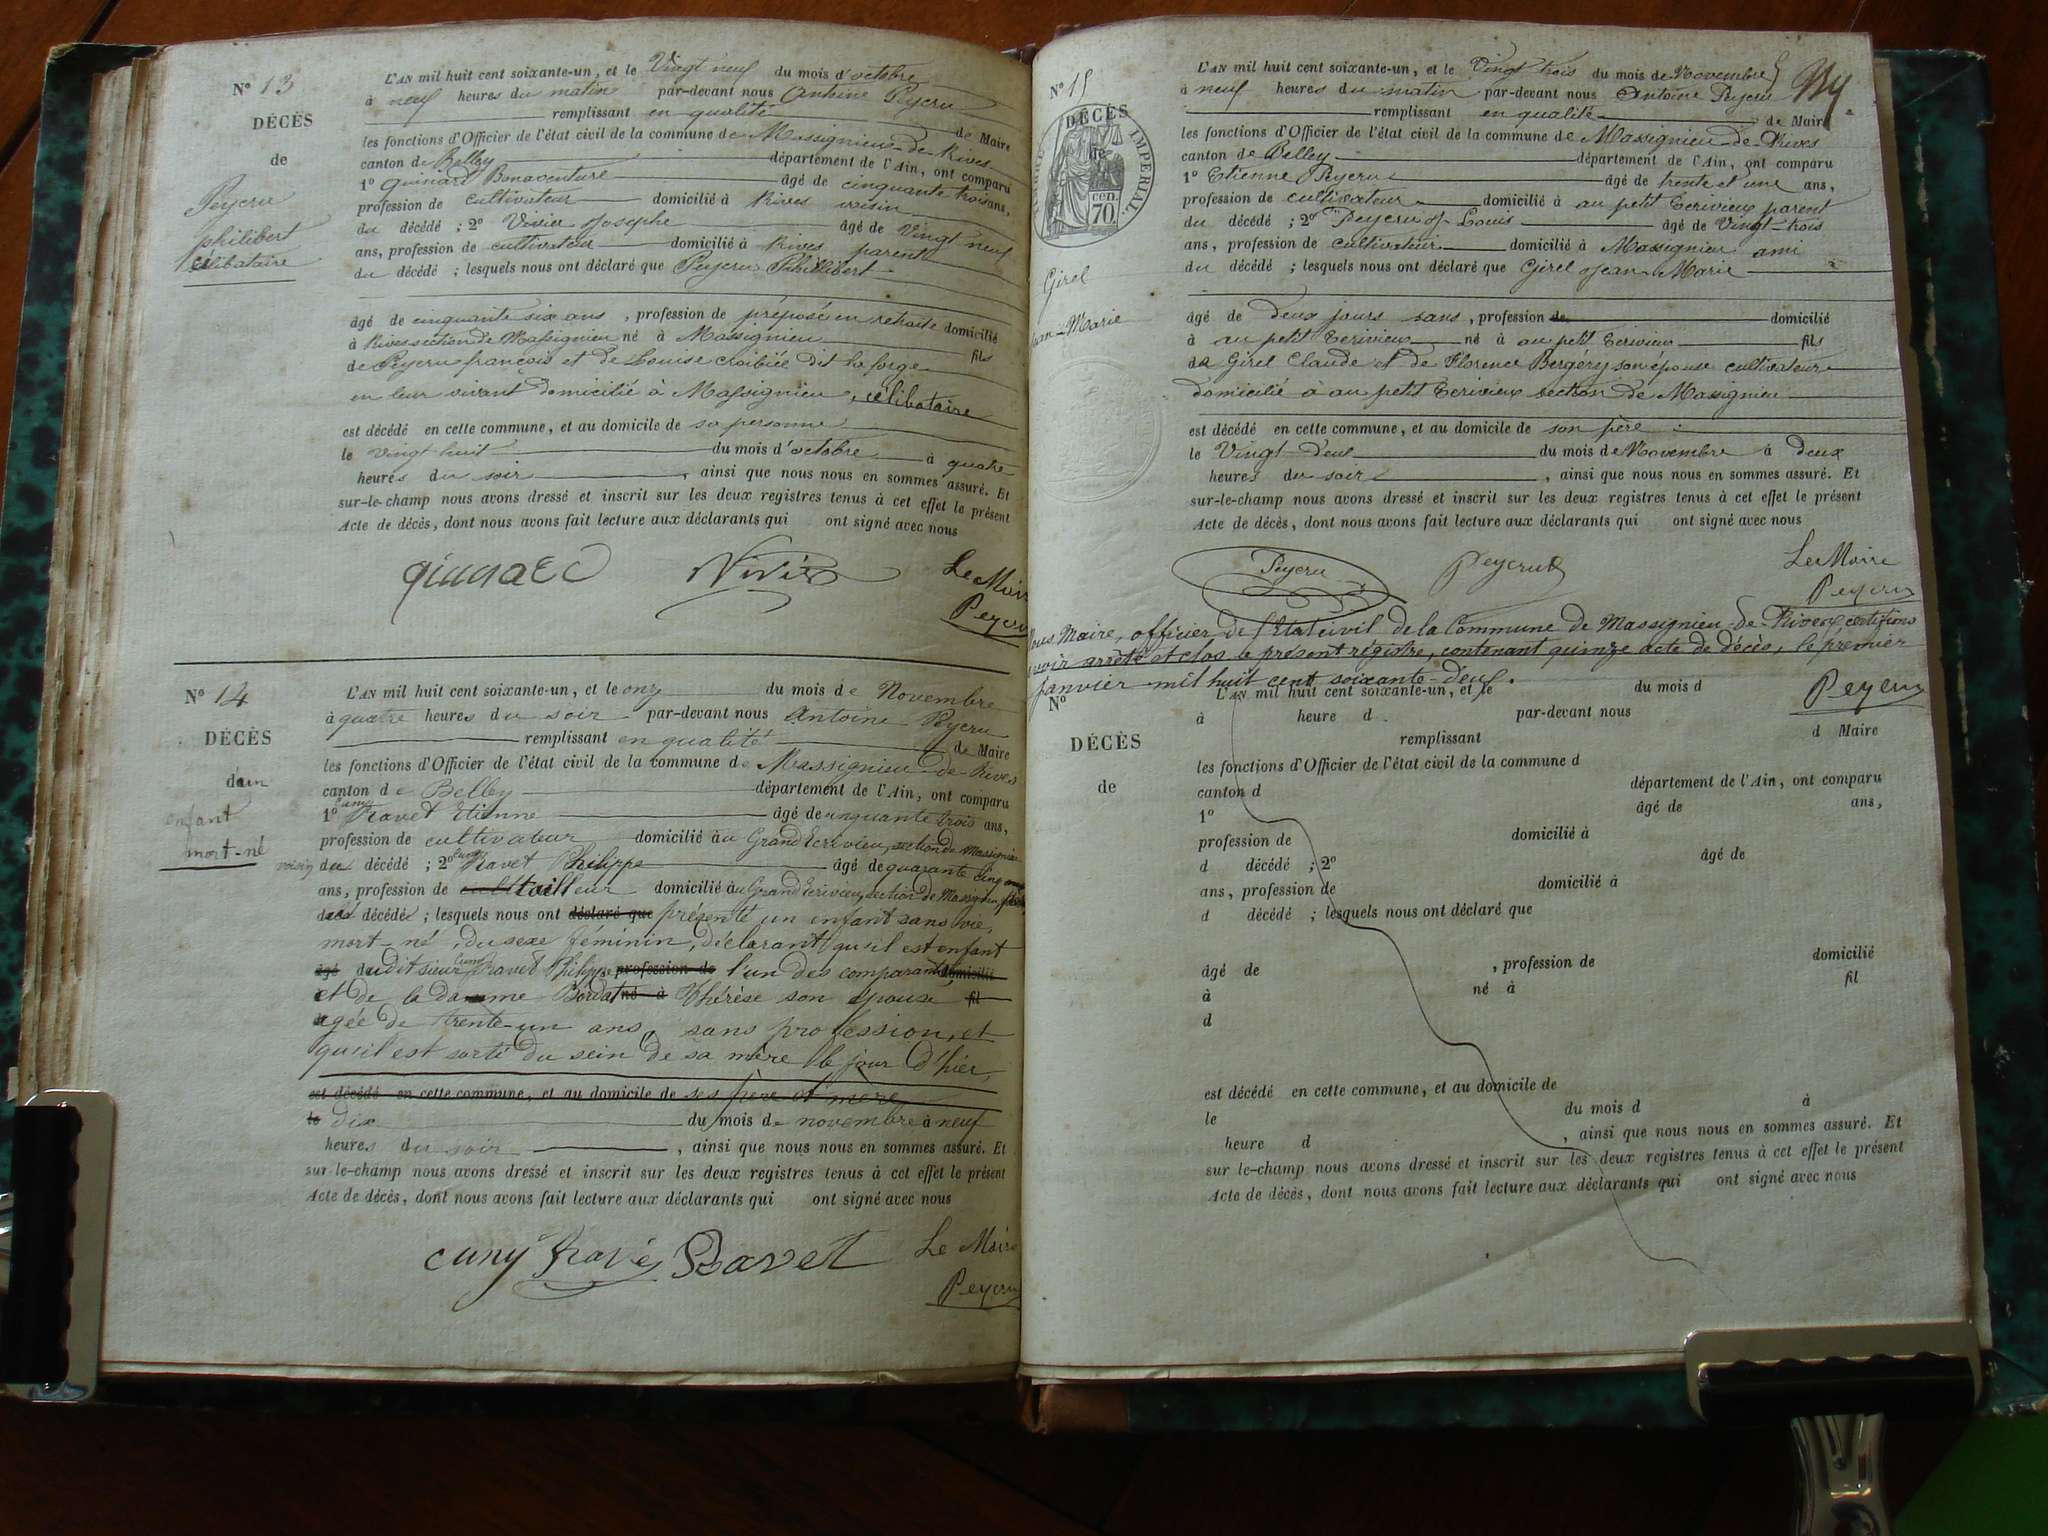 N° 13
DÉCÈS
de
Peycru
philibert
célibataire
L'AN mil huit cent soixante-un, et le Vingt neuf du mois d'octobre
à neuf heures du matin par-devant nous Antoine Peycru
remplissant en qualité de Maire
les fonctions d'Officier de l'état civil de la commune de Massignieu-de-Rives
canton de Belley département de l'Ain, ont comparu
1° Guinard Bonaventure âgé de cinquante trois ans,
profession de cultivateur domicilié à Rives voisin
du décédé ; 2° Vivier Josephe âgé de Vingt neuf
ans, profession de cultivateur domicilié à Rives parent
du décédé ; lesquels nous ont déclaré que Peycru Philibert
âgé de cinquante six ans, profession de préposé en retraite domicilié
à Rives section de Massignieu né à Massignieu fils
de Peycru françois et de Louise dit la forge
en leur vivant domicilié à Massignieu, célibataire
est décédé en cette commune, et au domicile de sa personne
le vingt huit du mois d'octobre à quatre
heures du soir, ainsi que nous nous en sommes assuré. Et
sur-le-champ nous avons dressé et inscrit sur les deux registres tenus à cet effet le présent
Acte de décès, dont nous avons fait lecture aux déclarants qui ont signé avec nous
Vivier Le Maire
Peycru
N° 14
DÉCÈS
d'un
enfant
mort-né
L'AN mil huit cent soixante-un, et le onze du mois de Novembre
à quatre heures du soir par-devant nous Antoine Peycru
remplissant en qualité de Maire
les fonctions d'Officier de l'état civil de la commune de Massignieu-de-Rives
canton de Belley département de l'Ain, ont comparu
1° Cuny Ravet Etienne âgé de cinquante trois ans,
profession de cultivateur domicilié au Grand Ecrivieu, section de Massignieu
voisin du décédé ; 2° Cuny Ravet Philippe âgé de quarante cinq
ans, profession de tailleur domicilié au Grand Ecrivieu, section de Massignieu,
décédé ; lesquels nous ont déclaré que présenté un enfant sans vie,
mort-né, du sexe féminin, déclarant qu'il est enfant
âgé dudit sieur Cuny Ravet Philippe profession de l'un des comparants domicilié
et de la dame Bordat né à Thérèse son épouse, fil
agée de trente-un ans, sans profession, et
qu'il est sorti du sein de sa mère le jour d'hier,
est décédé en cette commune, et au domicile de ses père et mère
le dix du mois de novembre à neuf
heures du soir, ainsi que nous nous en sommes assuré. Et
sur-le-champ nous avons dressé et inscrit sur les deux registres tenus à cet effet le présent
Acte de décès, dont nous avons fait lecture aux déclarants qui ont signé avec nous
cuny Ravet Le Maire
Peycru
N° 15
DÉCÈS
de
IMPÉRIAL
cen. 70
Girel
Jean-Marie
L'AN mil huit cent soixante-un, et le Vingt trois du mois de Novembre
à neuf heures du matin par-devant nous Antoine Peycru
remplissant en qualité de Maire
les fonctions d'Officier de l'état civil de la commune de Massignieu-de-Rives
canton de Belley département de l'Ain, ont comparu
1° Etienne Peycru âgé de trente et une ans,
profession de cultivateur domicilié à au petit Ecrivieux parent
du décédé ; 2° Peycru Louis âgé de Vingt-trois
ans, profession de cultivateur domicilié à Massignieu ami
du décédé ; lesquels nous ont déclaré que Girel Jean Marie
âgé de deux jours sans, profession de domicilié
à au petit Ecrivieux né à au petit Ecrivieux fils
de Girel Claude et de Florence Bergéry son épouse cultivateur
domicilié à au petit Ecrivieux section de Massignieu
est décédé en cette commune, et au domicile de son père
le Vingt-deux du mois de Novembre à deux
heures du soir, ainsi que nous nous en sommes assuré. Et
sur-le-champ nous avons dressé et inscrit sur les deux registres tenus à cet effet le présent
Acte de décès, dont nous avons fait lecture aux déclarants qui ont signé avec nous
Peycru Peycru Le Maire
Peycru
Nous Maire, officier de l'Etat civil de la Commune de Massignieu-de-Rives certifions
avoir arrêté et clos le présent régistre, contenant quinze acte de décès, le premier
Janvier mil huit cent soixante-deux.
Peycru
N°
DÉCÈS
de
L'AN mil huit cent soixante-un, et le du mois d
à heure d par-devant nous
remplissant d Maire
les fonctions d'Officier de l'état civil de la commune d
canton d département de l'Ain, ont comparu
1° âgé de ans,
profession de domicilié à
d décédé ; 2° âgé de
ans, profession de domicilié à
d décédé ; lesquels nous ont déclaré que
âgé de , profession de domicilié
à né à fil
d
est décédé en cette commune, et au domicile de
le du mois d à
heure d , ainsi que nous nous en sommes assuré. Et
sur le-champ nous avons dressé et inscrit sur les deux registres tenus à cet effet le présent
Acte de décès, dont nous avons fait lecture aux déclarants qui ont signé avec nous